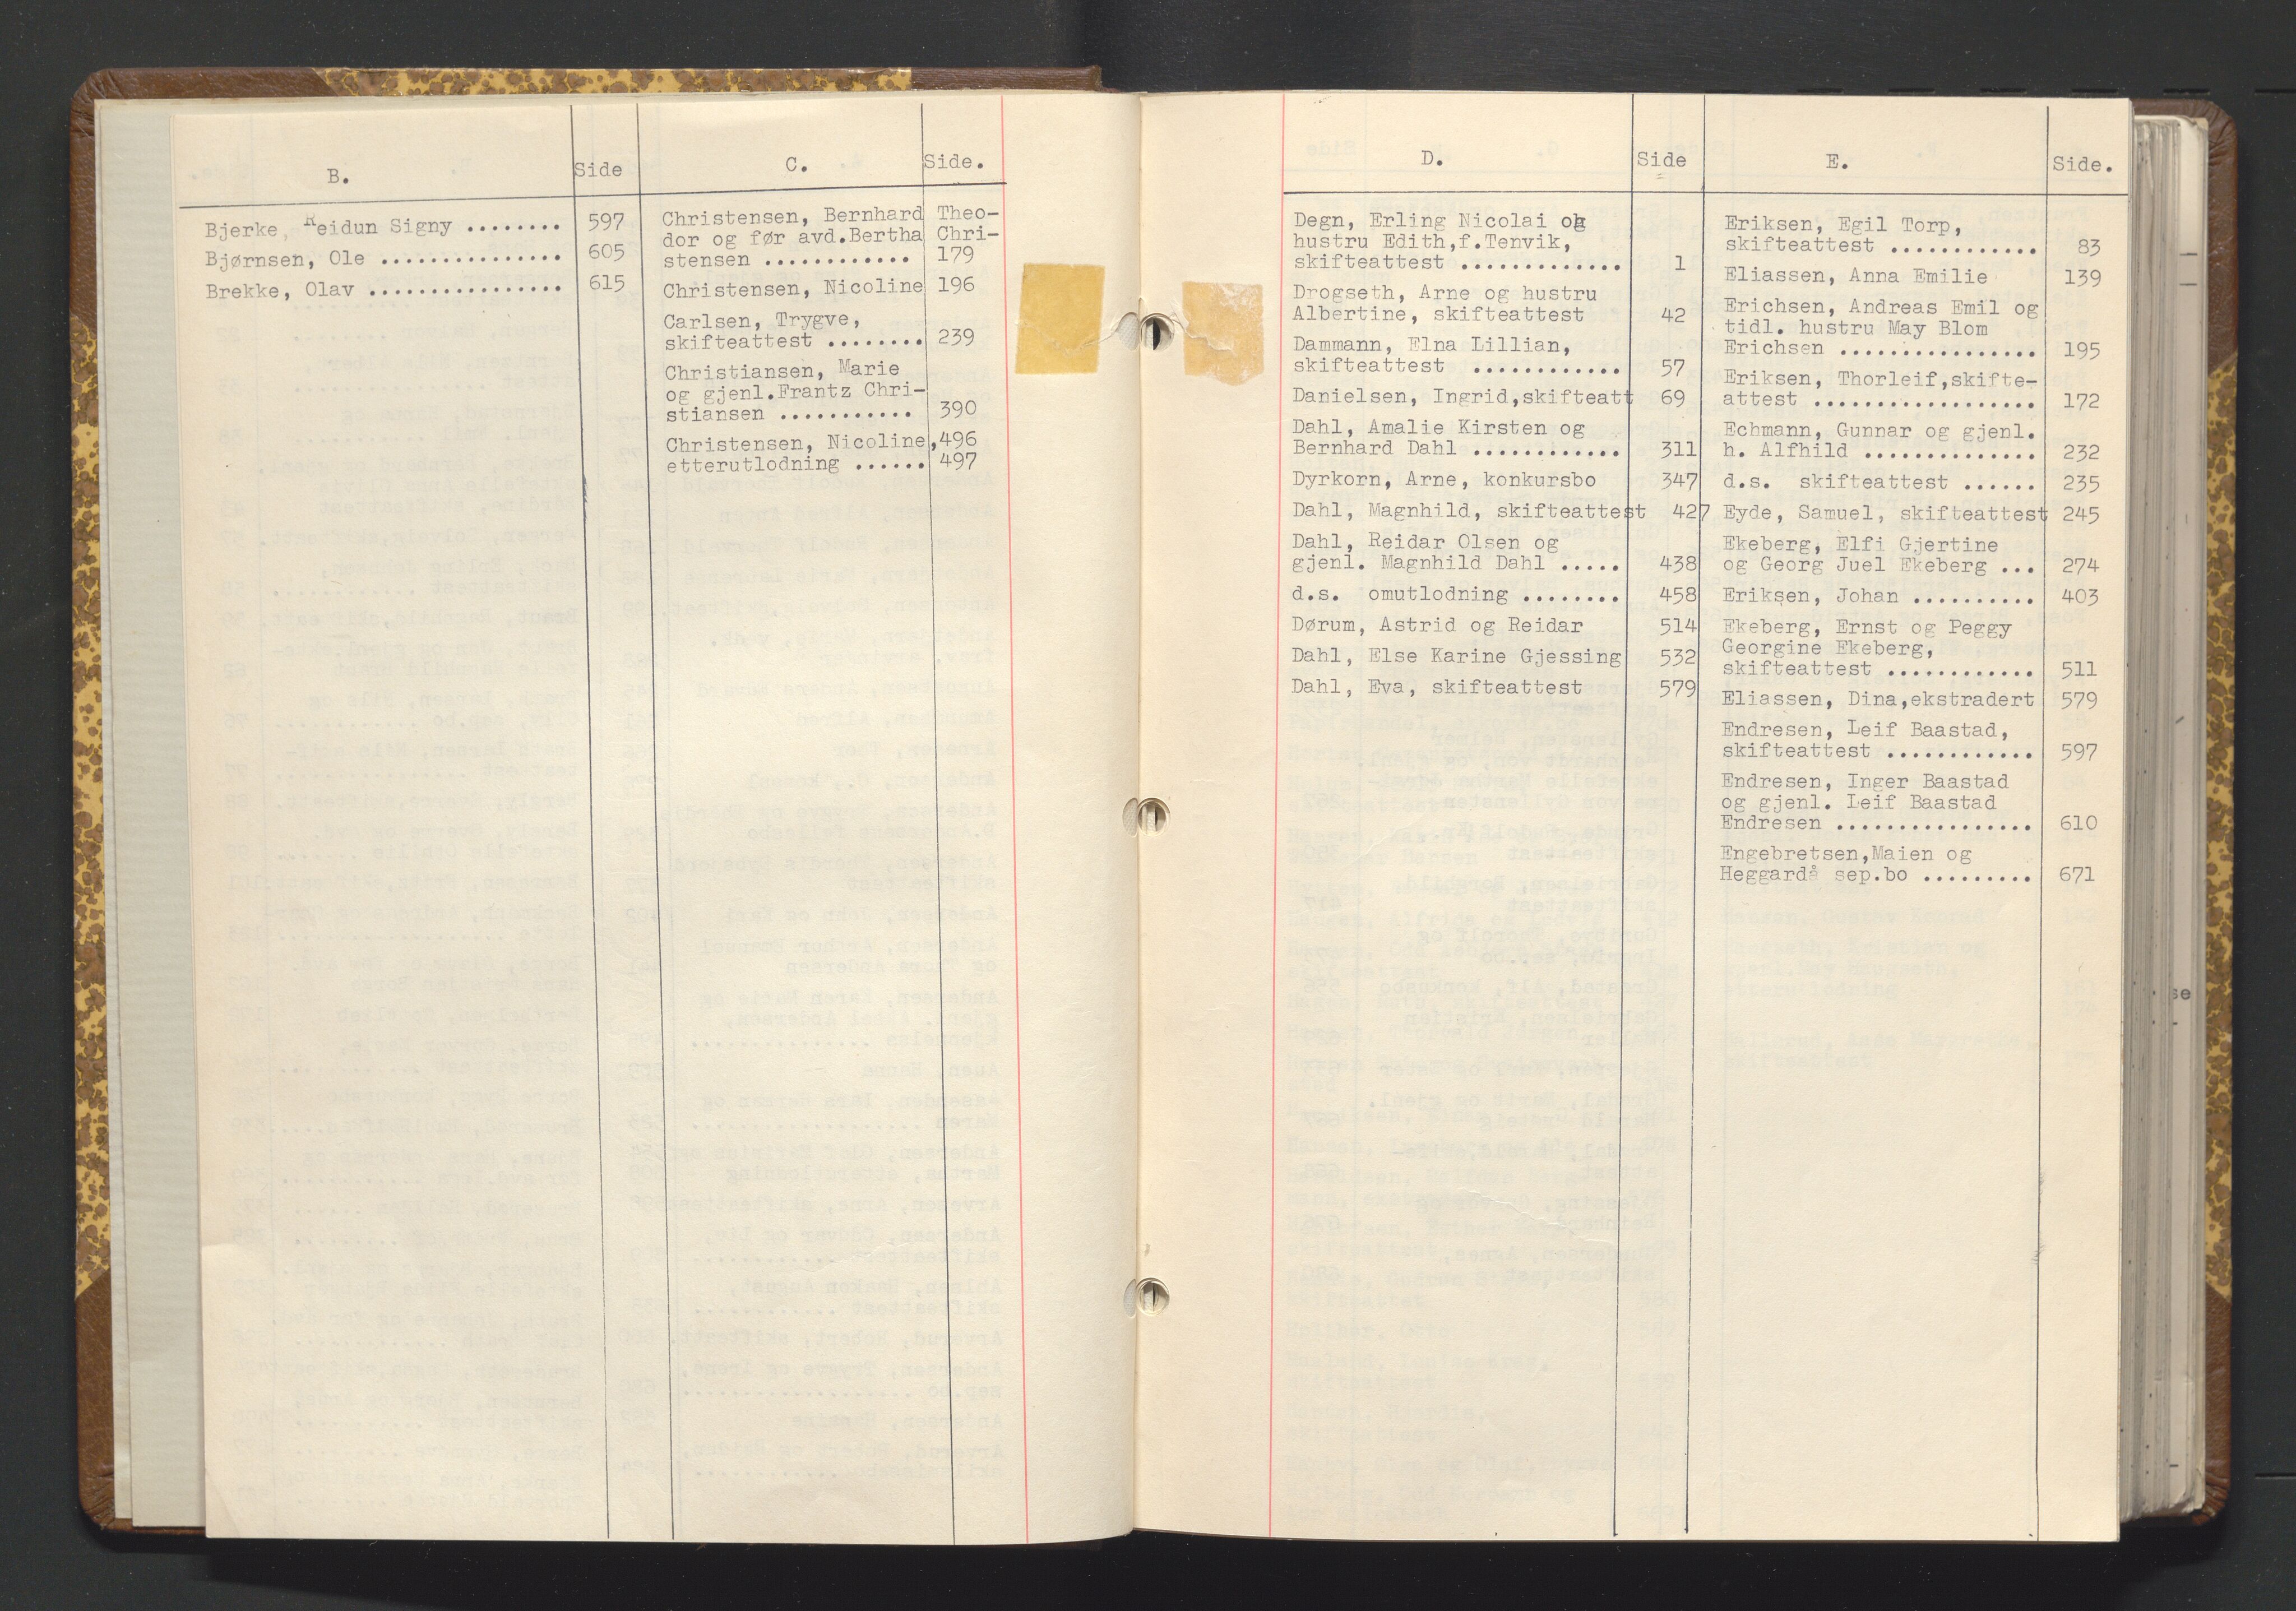 B.
Side
Bjerke, Reidun Signy ........ 597
Bjørnsen, Ole ............... 605
Brekke, Olav ................ 615
C.
Side.
Christensen, Bernhard Theo-
dor og før avd.Bertha Chri-
stensen ............ 179
Christensen, Nicoline 196
Carlsen, Trygve,
skifteattest ........ 239
Christiansen, Marie
og gjenl.Frantz Chri-
stiansen ........... 390
Christensen, Nicoline, 496
etterutlodning ...... 497
D.
Side
Degn, Erling Nicolai og
hustru Edith,f.Tenvik,
skifteattest ............. 1
Drogseth, Arne og hustru
Albertine, skifteattest 42
Dammann, Elna Lillian,
skifteattest ............ 57
Danielsen, Ingrid,skifteatt 69
Dahl, Amalie Kirsten og
Bernhard Dahl ............ 311
Dyrkorn, Arne, konkursbo 347
Dahl, Magnhild, skifteattest 427
Dahl, Reidar Olsen og
gjenl. Magnhild Dahl ..... 438
d.s. omutlodning ........ 458
Dørum, Astrid og Reidar 514
Dahl, Else Karine Gjessing 532
Dahl, Eva, skifteattest 579
E.
Side.
Eriksen, Egil Torp,
skifteattest ............ 83
Eliassen, Anna Emilie 139
Erichsen, Andreas Emil og
tidl. hustru May Blom
Erichsen ................ 195
Eriksen, Thorleif,skifte-
attest .................. 172
Echmann, Gunnar og gjenl.
h. Alfhild .............. 232
d.s. skifteattest ...... 235
Eyde, Samuel, skifteattest 245
Ekeberg, Elfi Gjertine
og Georg Juel Ekeberg ... 274
Eriksen, Johan .......... 403
Ekeberg, Ernst og Peggy
Georgine Ekeberg,
skifteattest ............ 511
Eliassen, Dina,ekstradert 579
Endresen, Leif Baastad,
skifteattest ............ 597
Endresen, Inger Baastad
og gjenl. Leif Baastad
Endresen ................ 610
Engebretsen,Maien og
Heggardå sep.bo ......... 671